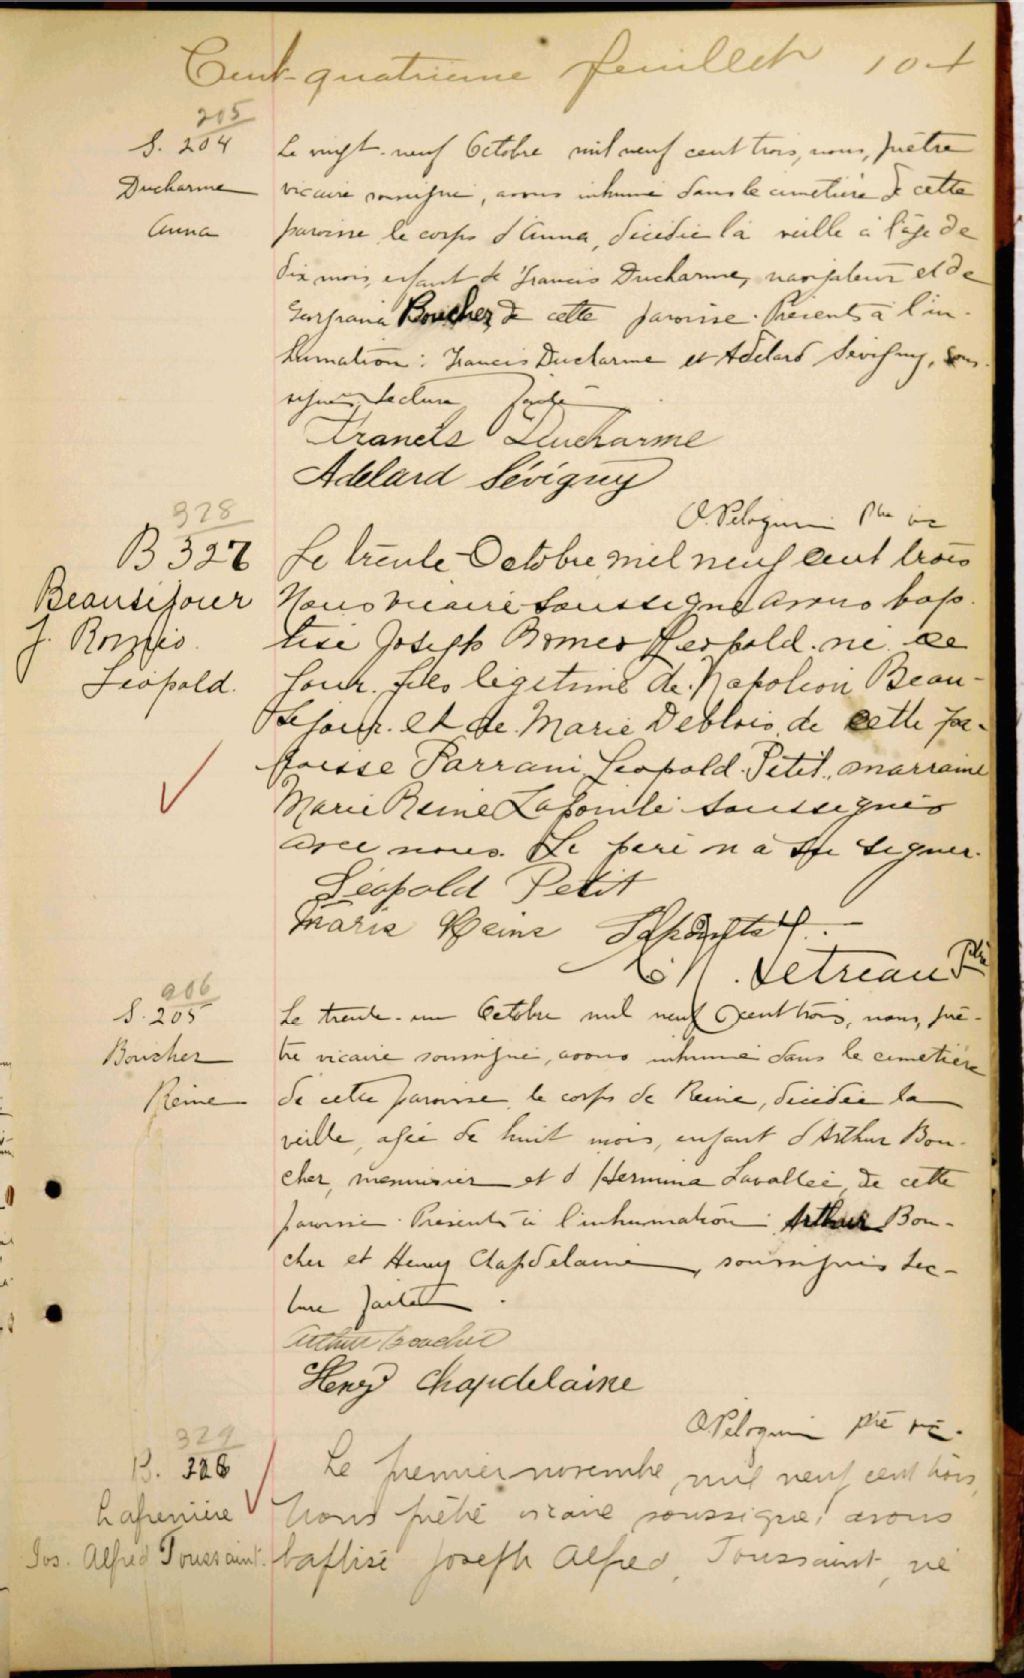 Cent-quatrième feuillet 104
205
S. 204
Ducharme
Anna
Le vingt-neuf Octobre mil neuf cent trois, nous, prêtre
vicaire soussigné, avons inhumé dans le cimetière de cette
paroisse le corps d'Anna, décédée la veille à l'âge de
dix mois, enfant de Francis Ducharme, navigateur et de
Georgiana Boucher de cette paroisse. Présents à l'in-
humation : Francis Ducharme et Adélard Sévigny, sous-
signés. Lecture faite.
Francis Ducharme
Adelard Sévigny
O. Péloquin Ptre vic
328
B 327
Beauséjour
J. Roméo
Léopold.
Le trente Octobre mil neuf cent trois
Nous vicaire soussigné avons bap-
tisé Joseph Romeo Leopold. né ce
jour. fils légitime de Napoléon Beau-
sejour. et de Marie Deblois, de cette pa-
roisse Parrain Leopold Petit, marraine
Marie Reine Lapointe soussignés
avec nous. Le père n'a su signer.
Léopold Petit
Marie Reine Lapointe
Letreau Ptre
206
S. 205
Boucher
Reine
Le trente-un Octobre mil neuf cent trois, nous, prê-
tre vicaire soussigné, avons inhumé dans le cimetière
de cette paroisse, le corps de Reine, décédée la
veille, agée de huit mois, enfant d'Arthur Bou-
cher, menuisier et d'Hermina Lavallée, de cette
paroisse. Présents à l'inhumation : Arthur Bou-
cher et Henry Chapdelaine, soussignés Lec-
ture faite.
Arthur Boucher
Henry Chapdelaine
O. Péloquin ptre vic.
329
B. 328
Lafrenière
Jos. Alfred Toussaint.
Le premier novembre mil neuf cent trois,
Nous prêtre vicaire soussigné, avons
baptisé Joseph Alfred, Toussaint, né